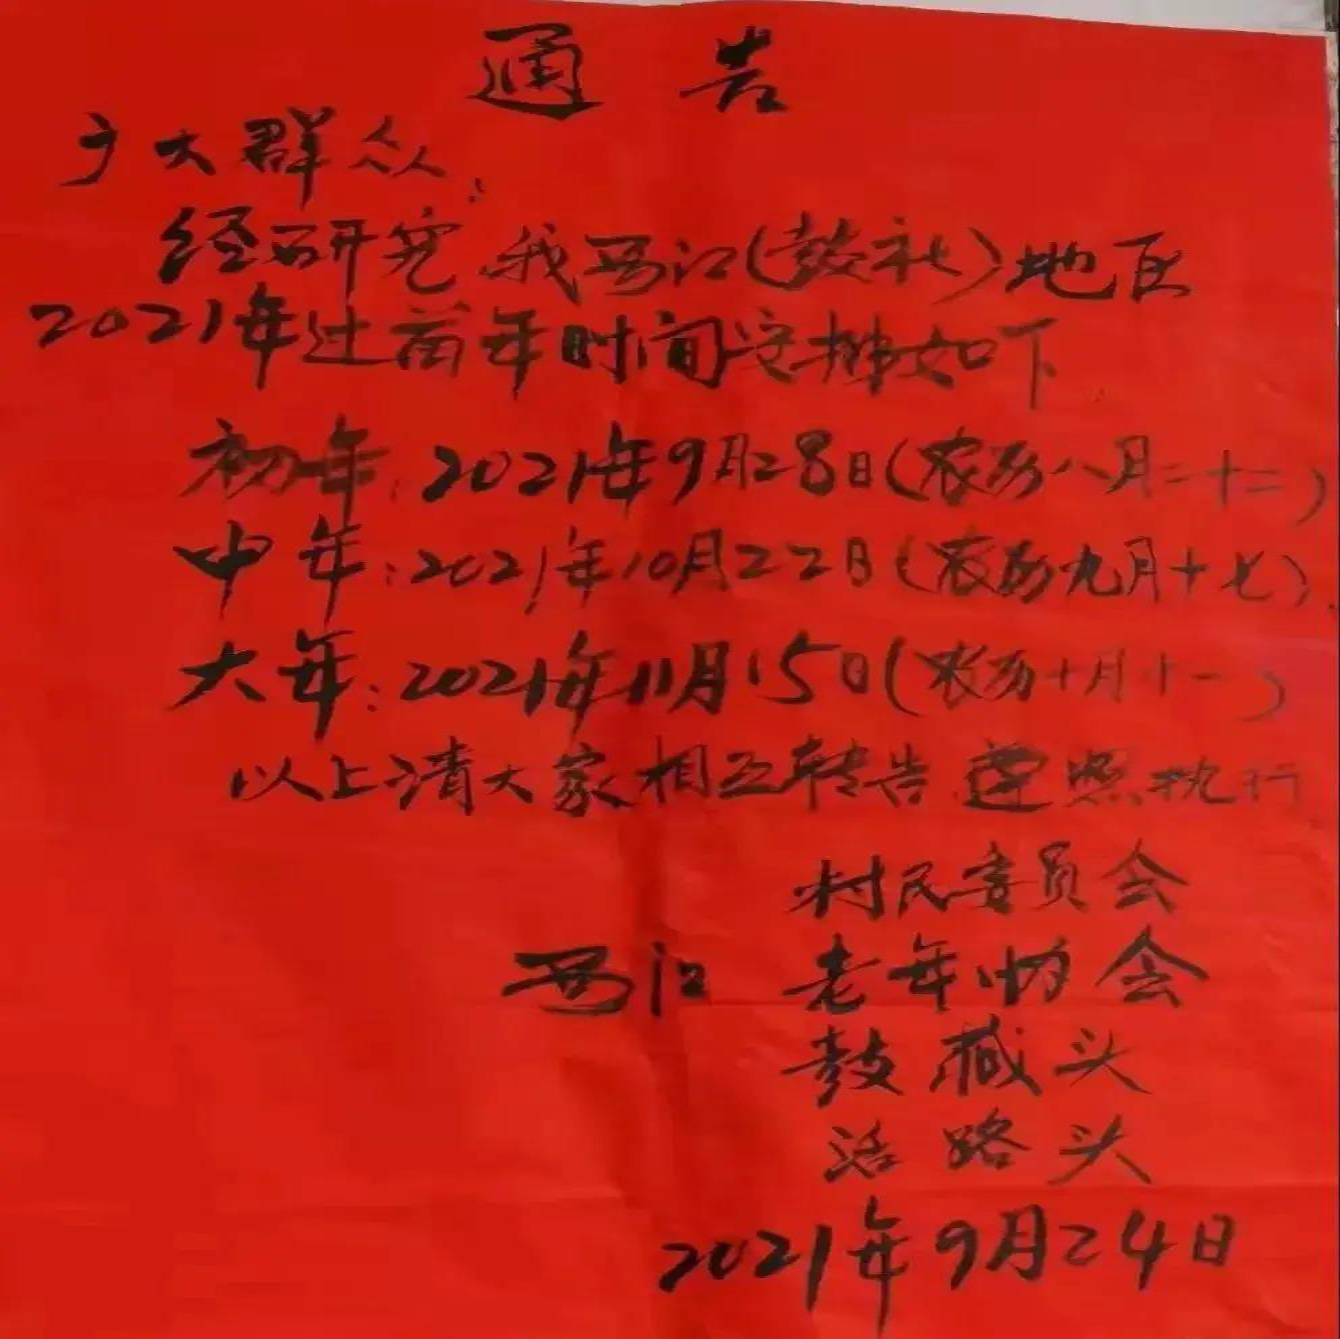 通告
广大群众:
经研究,我西江(鼓社)地区
2021年过苗年时间安排如下
初年:2021年9月28日(农历八月二十二)
中年:2021年10月22日(农历九月十七)
大年:2021年11月15日(农历十月十一)
以上请大家相互转告,遵照执行
村民委员会
西江 老年协会
鼓藏头
活路头
2021年9月24日